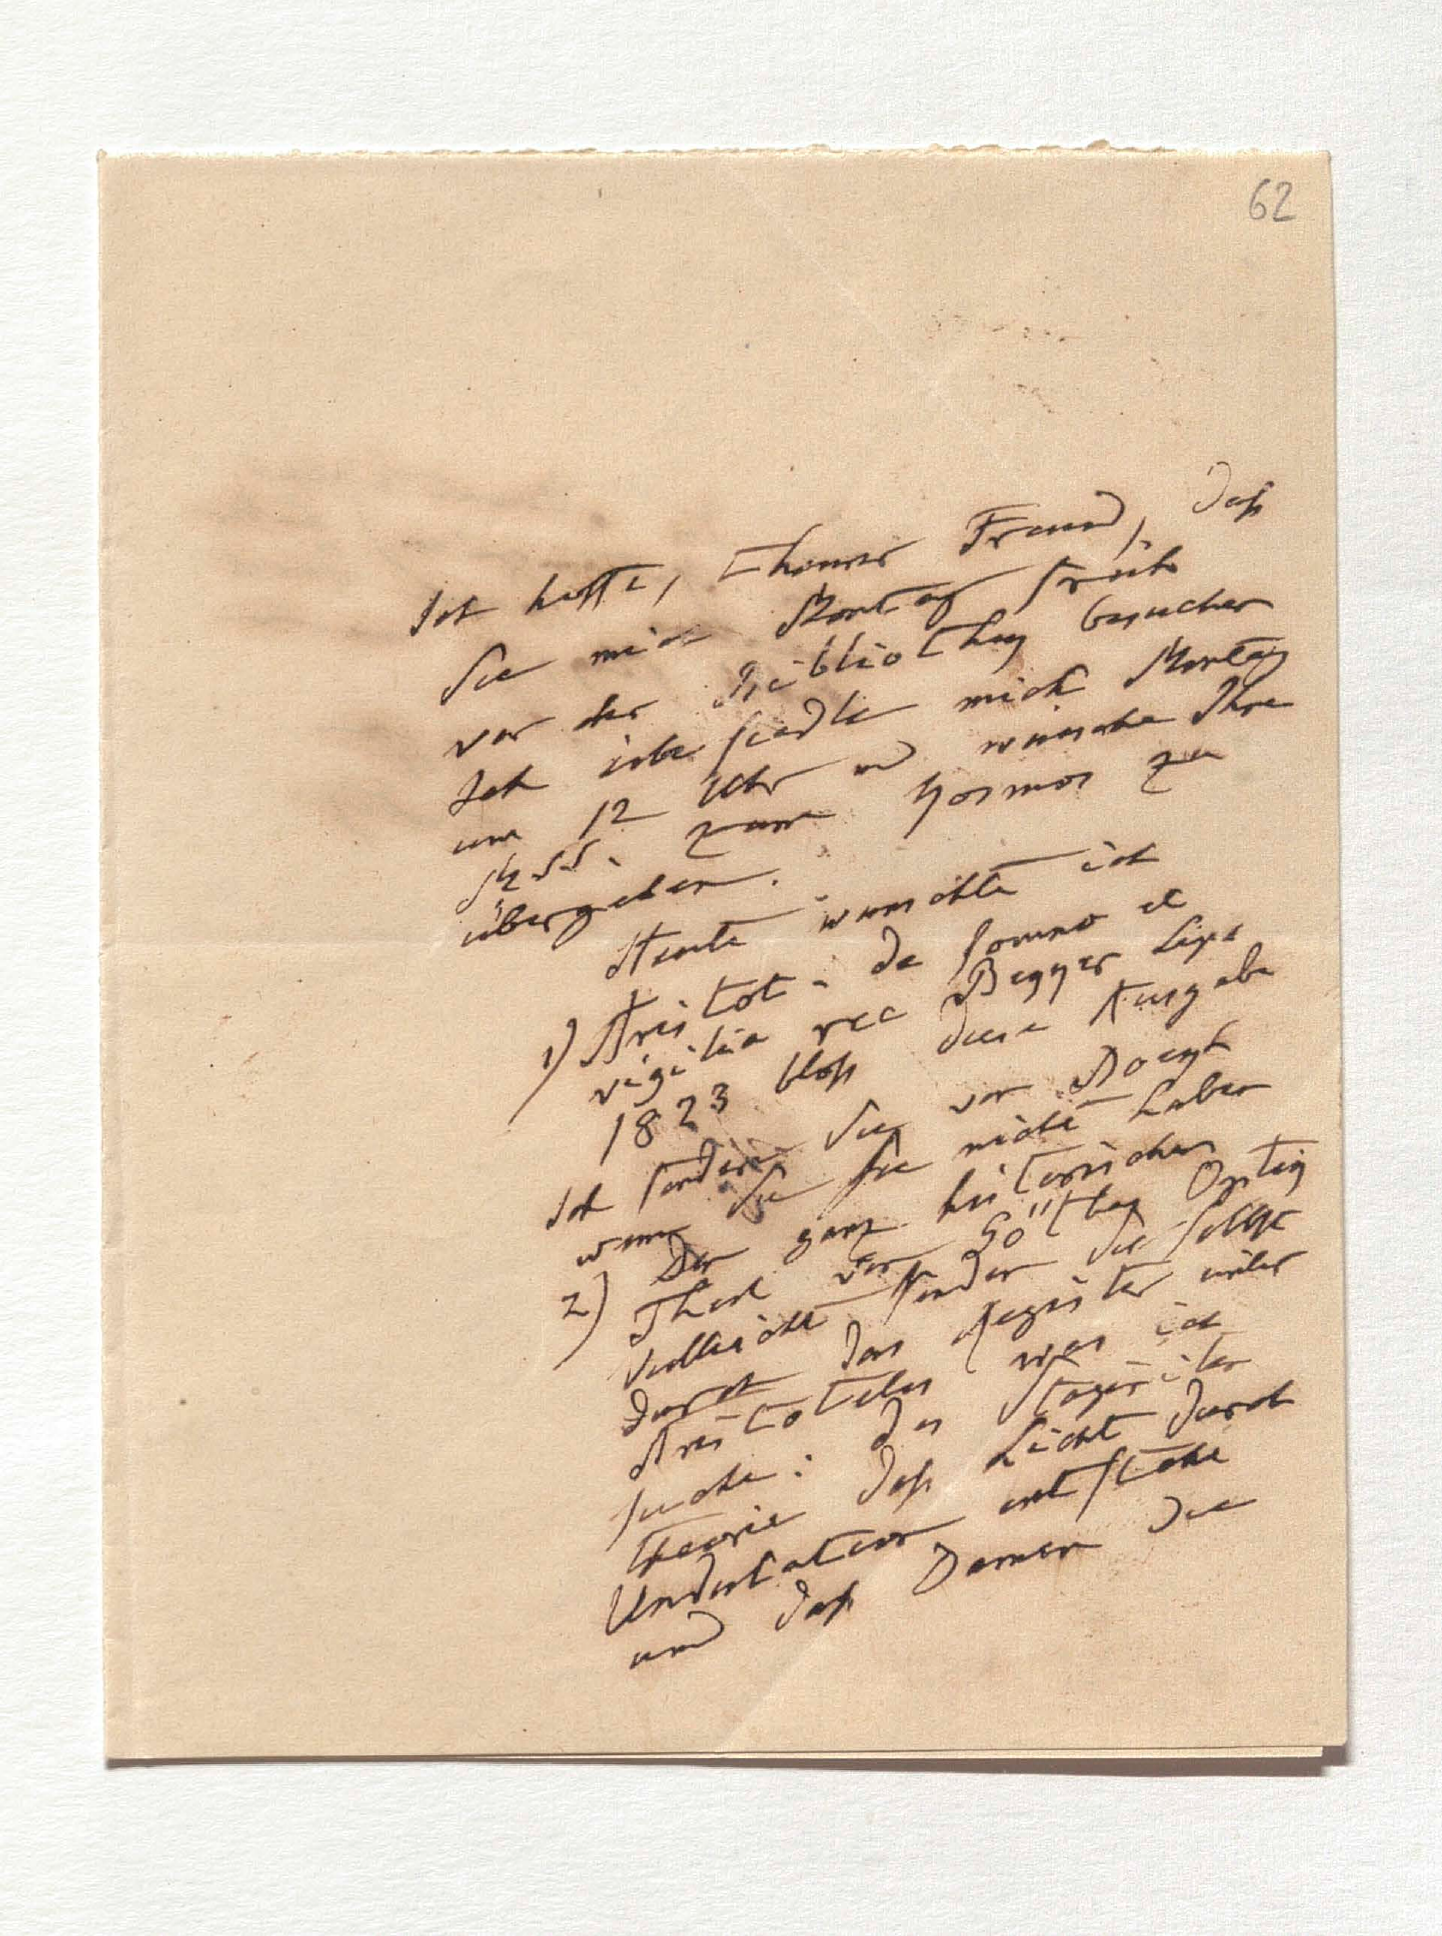 62
Ich hoffe, theurer Freund, daß
Sie mich Montag früh
vor der Bibliothek besuchen
Ich übersiedle mich Montag
um 12 Uhr und wünsche Ihre
Mss. zum Kosmos zu
übergeben.
Heute wünschte ich
1) Aristot. de somno et
vigilia rec Becker Lips
1823 bloß diese Ausgabe
Ich fordere sie von
wenn Sie sie nicht haben
2) Der ganz historischen
Theil von Göthes Optik
vielleicht finden Sie selbst
durch das Register unter
Aristoteles was ich
suche: des Stagiriten
Theorie daß Licht durch
Undulation entstehe
und daß Damen die